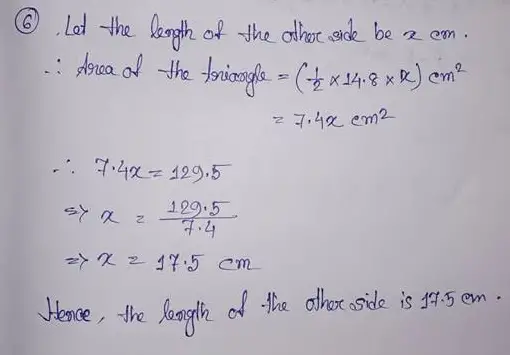 ⑥ Let the length of the other side be x cm.
∴ Area of the triangle = (½ × 14.8 × x) cm²
= 7.4x cm²
∴ 7.4x = 129.5
⇒ x = 129.5/7.4
⇒ x = 17.5 cm
Hence, the length of the other side is 17.5 cm.